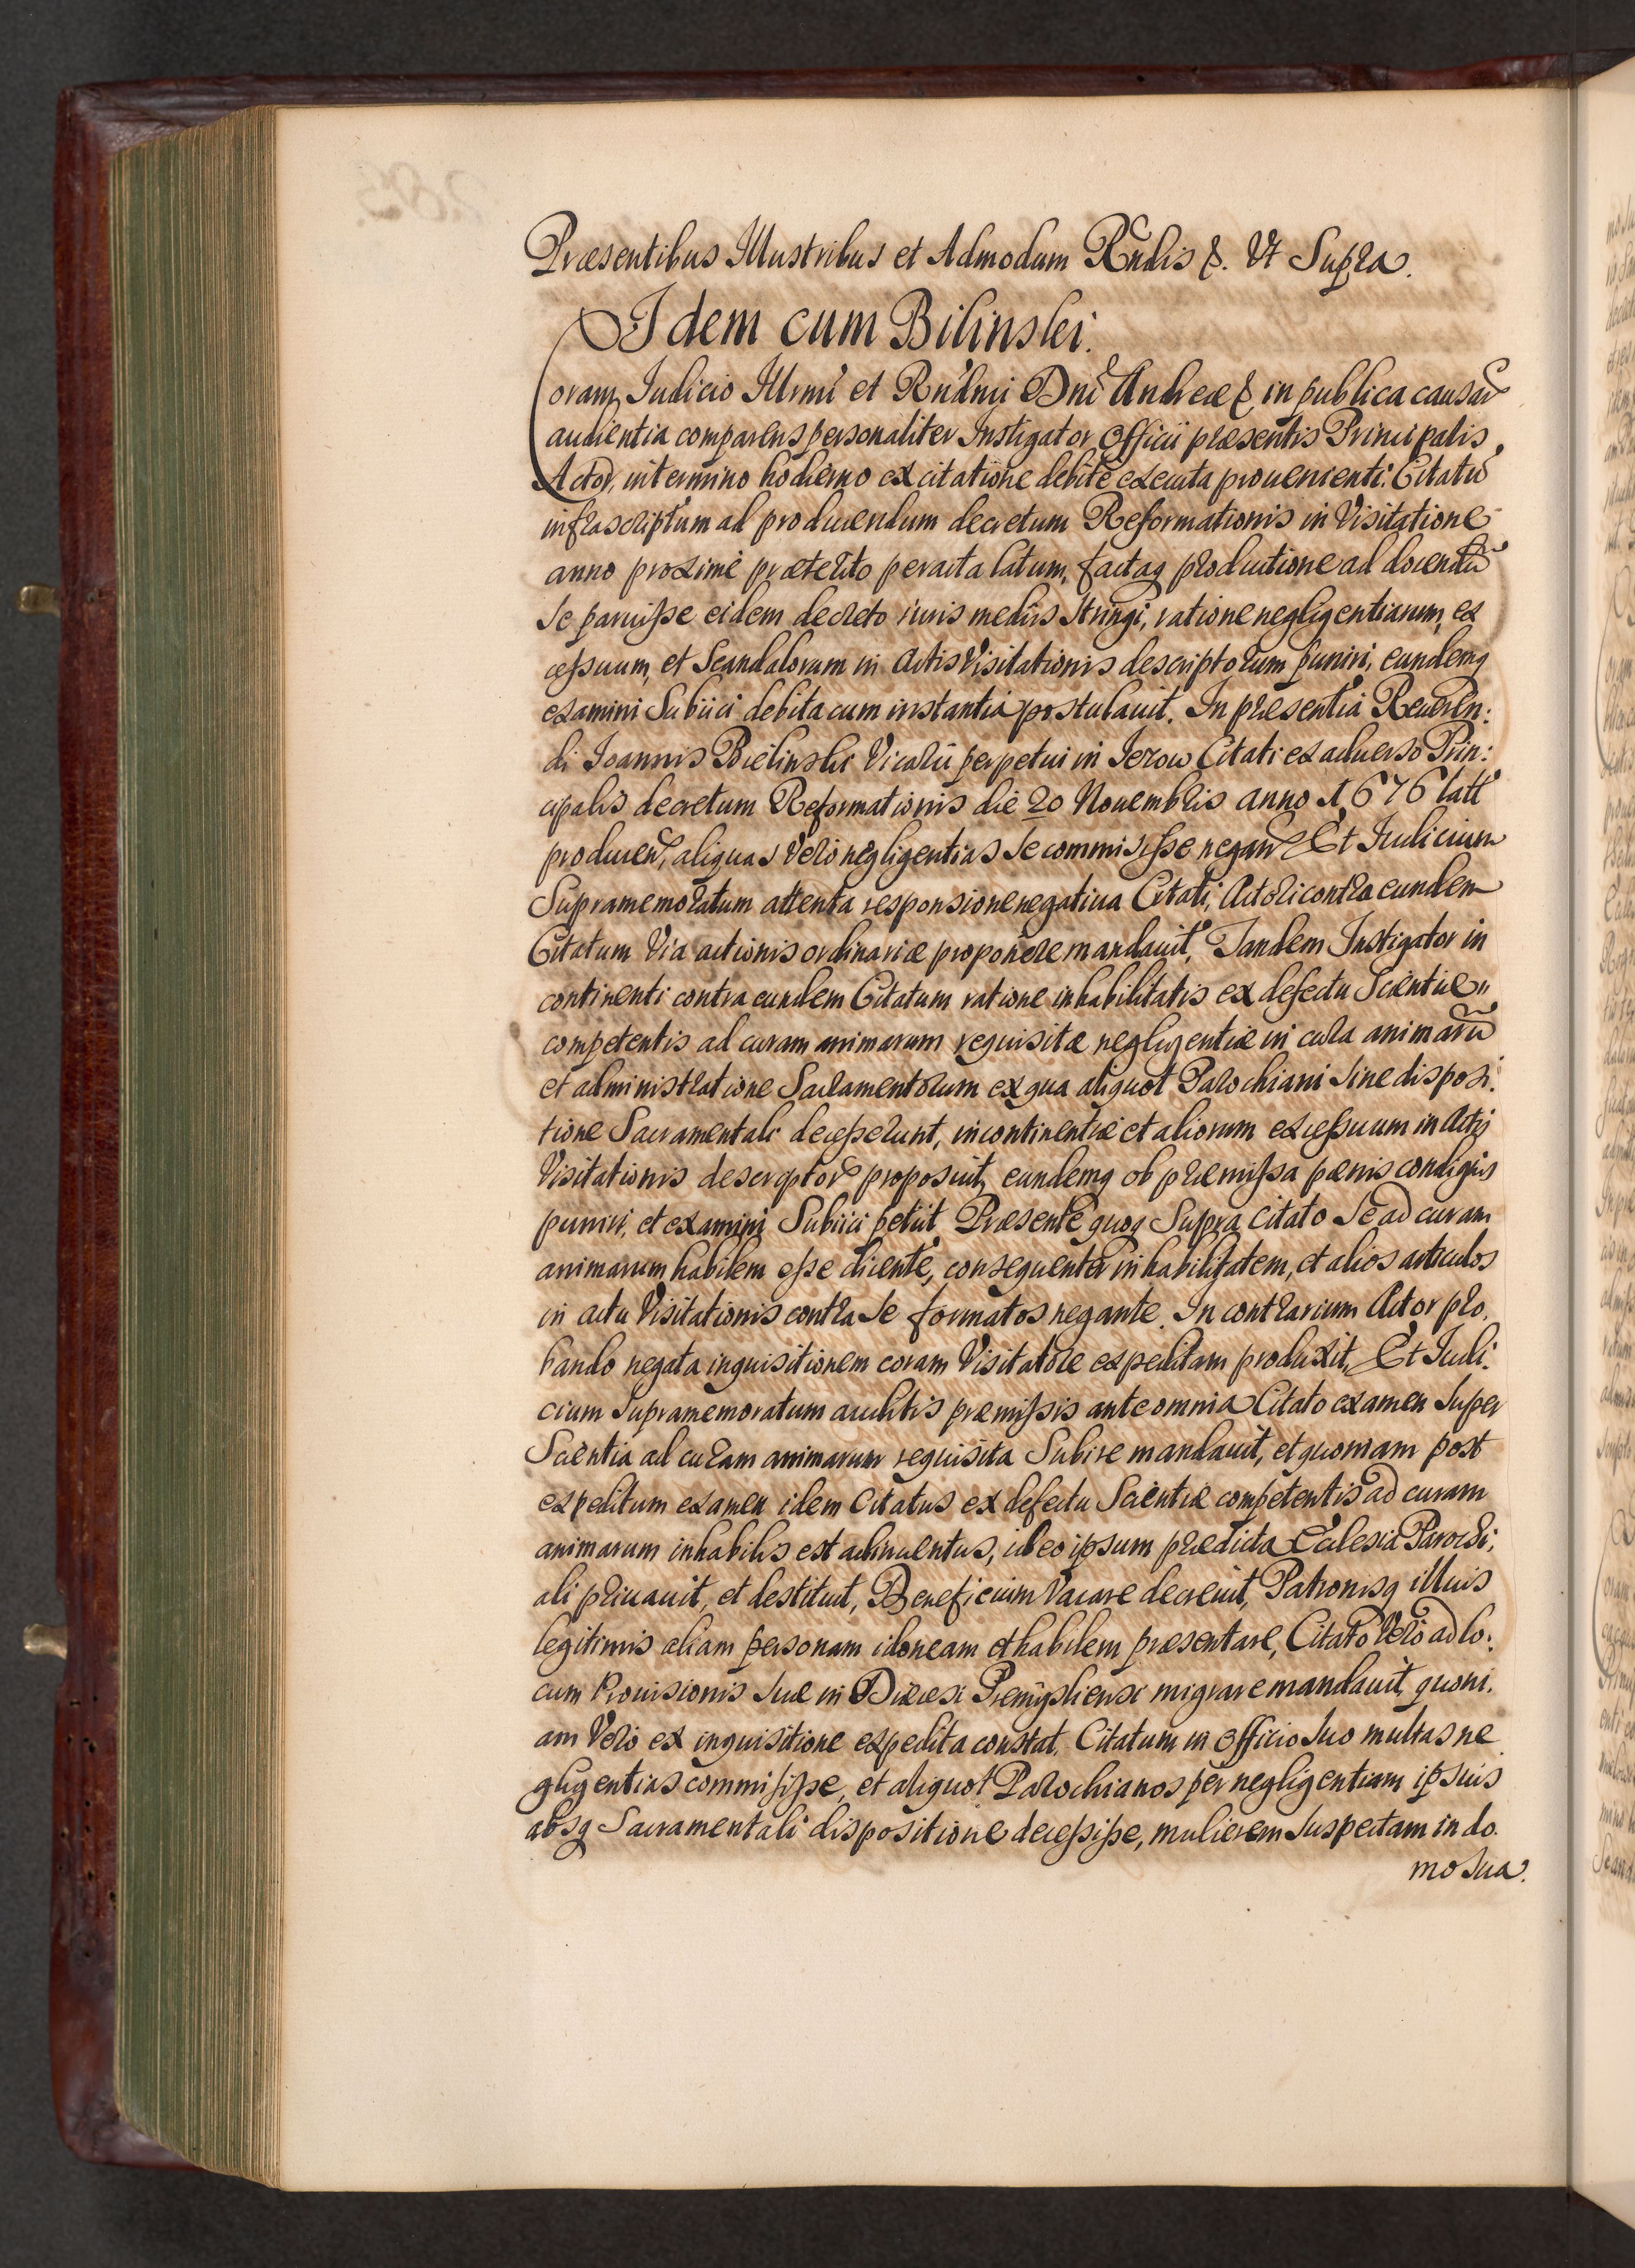 Præsentibus Illustribus et Admodum Rndis &. Vt Supra.
Idem cum Bilinski.
Coram Iudicio Illrmi et Rndmi Dni Andreæ & in publica causar
audientia comparens personaliter Instigator Officii præsentis Principalis
Actor, in termino hodierno ex citatione debite executa prouenienti. Citatū
infrascriptum ad producendum decretum Reformationis in Visitatione
anno proximè præterito peracta latum, factaq productione ad docendū
se paruisse eidem decreto iuris medijs stringi, ratione negligentiarum, ex
cessuum, et Scandalorum in Actis Visitationis descriptorum puniri, eundemq
examini Subiici debita cum instantia postulauit. In præsentia Reueren:
di Ioannis Bielinski Vicarii perpetui in Jerow Citati ex aduerso Prin:
cipalis decretum Reformationis die 20 Nouembris anno 1676 latt
producen, aliquas Verò negligentias se commisisse negan Et Iudicium
Supramemoratum attenta responsione negatiua Citati, Actori contra eundem
Citatum Via actionis ordinariæ proponere mandauit, Tandem Instigator in
continenti contra eundem Citatum ratione inhabilitatis ex defectu Scientiæ
competentis ad curam animarum requisitæ negligentiæ in cura animarū
et administratione Sacramentorum ex qua aliquot Parochiani sine disposi:
tione Sacramentali decesserunt, incontinentiæ et aliorum excessuum in Actis
Visitationis descriptor proposuit, eundemq ob præmissa pænis condignis
puniri, et examini Subiici petiit. Præsente quoq Supra citato Se ad curam
animarum habilem esse dicente, consequenter inhabilitatem, et alios articulos
in actu Visitationis contra Se formatos negante. In contrarium Actor pro.
bando negata inquisitionem coram Visitatore expeditam produxit, Et Iudi:
cium Supramemoratum auditis præmissis ante omnia Citato examen Super
Scientia ad curam animarum requisita Subire mandauit, et quoniam post
expeditum examen idem Citatus ex defectu Scientiæ competentis ad curam
animarum inhabilis est adinuentus, ideo ipsum prædicta Ecclesia Parochi:
ali priuauit, et destituit, Beneficium Vacare decreuit, Patronisq illius
legitimis aliam personam idoneam et habilem præsentare, Citato Verò ad lo:
cum Prouisionis Suæ in Diæcesi Premÿsliensi migrare mandauit, quoni.
am Verò ex inquisitione expedita constat, Citatum in Officio Suo multas ne
gligentias commisisse, et aliquot Parochianos per negligentiam ipsius
absq Sacramentali dispositione decessisse, mulierem Suspectam in do.
mo Sua.